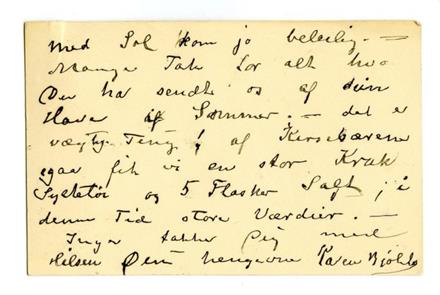 med Sol kom jo beleilig. —
Mange Tak for alt hva
De har sendt os af din
Have i Sommer. — det er
vægtige Ting! af Kirsebærene
ogsaa fik vi en stor Kruk
Syltetøi og 5 Flasker Saft, i
denne Tid store Værdier. —
Inger takker Dig med
Hilsen Din hengivne Karen